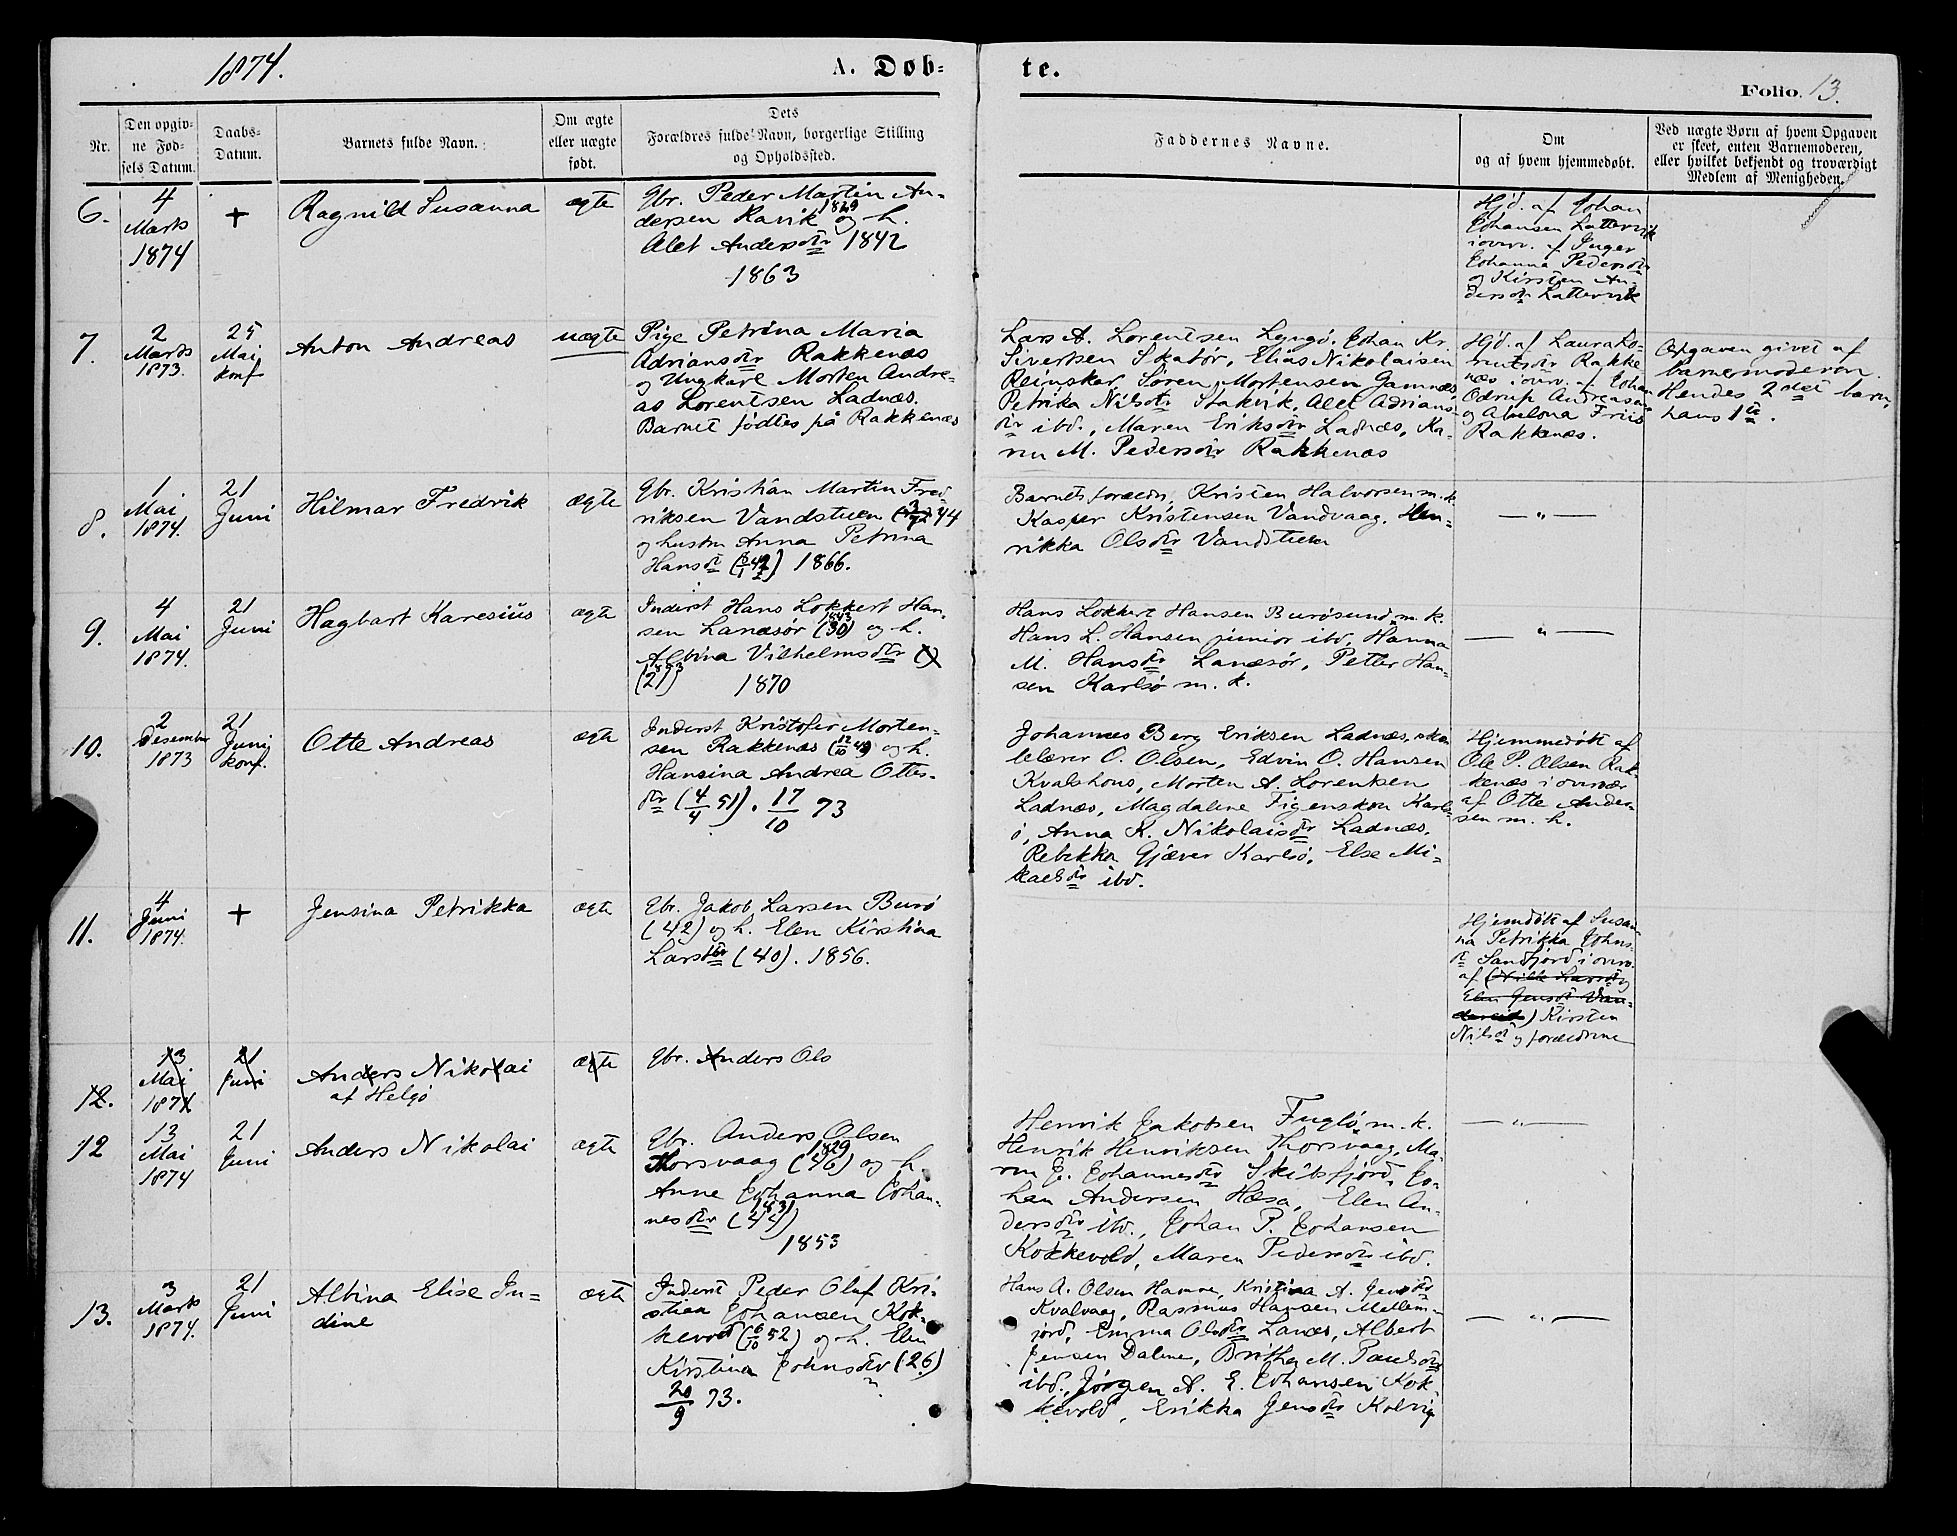 1874.
A. Døb-
te.
Folio. 13.
Nr.
Den opgiv-
ne Fød-
sels Datum.
Daabs-
Datum.
Barnets fulde Navn.
Om ægte
eller uægte
født.
Dets
Forældres fulde Navn, borgerlige Stilling
og Opholdssted.
Faddernes Navne.
Om
og af hvem hjemmedøbt.
Ved uægte Børn af hvem Opgaven
er skeet, enten Barnemoderen,
eller hvilket bekjendt og troværdigt
Medlem af Menigheden.
6.
4
Marts
1874
+
Ragnild Susanna
ægte
Gbr. Peder Martin An-
dersen Ravik 1829 og h.
Alet Andersdtr 1842
1863
Hjd. af Johan
Johansen Lattervik
i overv. af Inger
Johanna Pedersdtr
og Kirsten An-
dersdtr Lattervik
7.
2
Marts
1873.
25
Mai
konf
Anton Andreas
uægte
Pige Petrina Maria
Adriansdtr Rakkenæs
og Ungkarl Morten Andre-
as Lorentsen Ladnæs.
Barnet fødtes på Rakkenæs
Lars A. Lorentsen Lyngö, Johan Kr.
Sivertsen Skatør, Elias Nikolaisen
Reinskar, Søren Mortensen Gamnæs,
Petrika Nilsdtr Stakvik, Alet Adrians-
dtr ibd., Maren Eriksdtr Ladnæs, Ka-
ren M. Pedersdtr Rakkenæs
Hjd. af Laura Lo-
rentsdtr Rakke-
næs i overv. af Johan
Odrup Andreasen
og Abelona Friis
Rakkenæs.
Opgaven givet af
barnemoderen.
Hendes 2det barn,
hans 1te.
8.
1
Mai
1874.
21
Juni
Hilmar Fredrik
ægte
Gbr. Kristian Martin Fred-
riksen Vandstuen 44
og hustru Anna Petrina
Hansdtr 1866.
Barnets forældre, Kristen Halvorsen m. k.
Kasper Kristensen Vandvaag, Hen-
rikka Olsdtr Vandstuen
— " —
9.
4
Mai
1874.
21
Juni
Hagbart Karesius
ægte
Inderst Hans Lokkert Han-
sen Lanæsør (30) 1843 og h.
Albina Vilhelmsdtr
(21) 1853 1870
Hans Lokkert Hansen Burøsund m. k.
Hans L. Hansen junior ibd. Hanna
M. Hansdtr Lanæsør, Petter Han-
sen Karlsø m. k.
— " —
10.
2
Desember
1873
21
Juni
konf.
Otte Andreas
ægte
Inderst Kristofer Morten-
sen Rakkenæs (12/10 49) og h.
Hansina Andrea Ottes-
dtr (4/4 51). 17/10 73
Johannes Berg Eriksen Ladnæs, sko-
lelærer O. Olsen, Edvin O. Hansen
Kvalshous, Morten A. Lorentsen
Ladnæs, Magdalene Figenskou Karls-
ø, Anna K. Nikolaisdtr Ladnæs,
Rebekka Gjæver Karlsø, Else Mi-
kaelsdtr ibd.
Hjemmedøbt af
Ole P. Olsen Rak-
kenæs i overvær
af Otte Ander-
sen m. h.
11.
4
Juni
1874.
+
Jensina Petrikka
ægte
Gbr. Jakob Larsen Burö
(42) og h. Elen Kirstina
Larsdtr (40). 1856.
Hjemdøbt af Susan-
na Petrikka Johns-
dtr Sandfjord i overv.
af (Nille Larsdtr og
Elen Jensdtr Van-
dareid) Kirsten
Nilsdtr og forældrene
12.
13
Mai
1874
21
Juni
Anders Nikolai
af Helgö
ægte
Gbr. Anders Ols
12
13
Mai
1874
21
Juni
Anders Nikolai
ægte
Gbr. Anders Olsen
Thorsvaag (46) 1829 og h.
Anne Johanna Johan-
nesdtr (44) 1831
1853
Henrik Jakobsen Fuglø m. k.
Henrik Henriksen Thorsvaag, Ma-
ren J. Johannesdtr Skibsfjord, Jo-
han Andersen Hæsa, Elen An-
dersdtr ibd., Johan P. Johansen
Kokkevold, Maren Pedersdtr ibd.
— " —
13.
3
Marts
1874.
21
Juni
Albina Elise In-
dine
ægte
Inderst Peder Oluf Kri-
stian Johansen Kok-
kevold (6/10 52) og h. Elen
Kirstina Johnsdtr (26)
20/9 73.
Hans A. Olsen Hamre, Kristina A. Jensdtr
Kvalvaag, Rasmus Hansen Mellem-
jord, Emma Olsdtr Lanæs, Albert
Jensen Dalene, Britha M. Paulsdtr
ibd., Jörgen A. E. Johansen Kok-
kevold, Erikka Jensdtr Kolvig
— " —